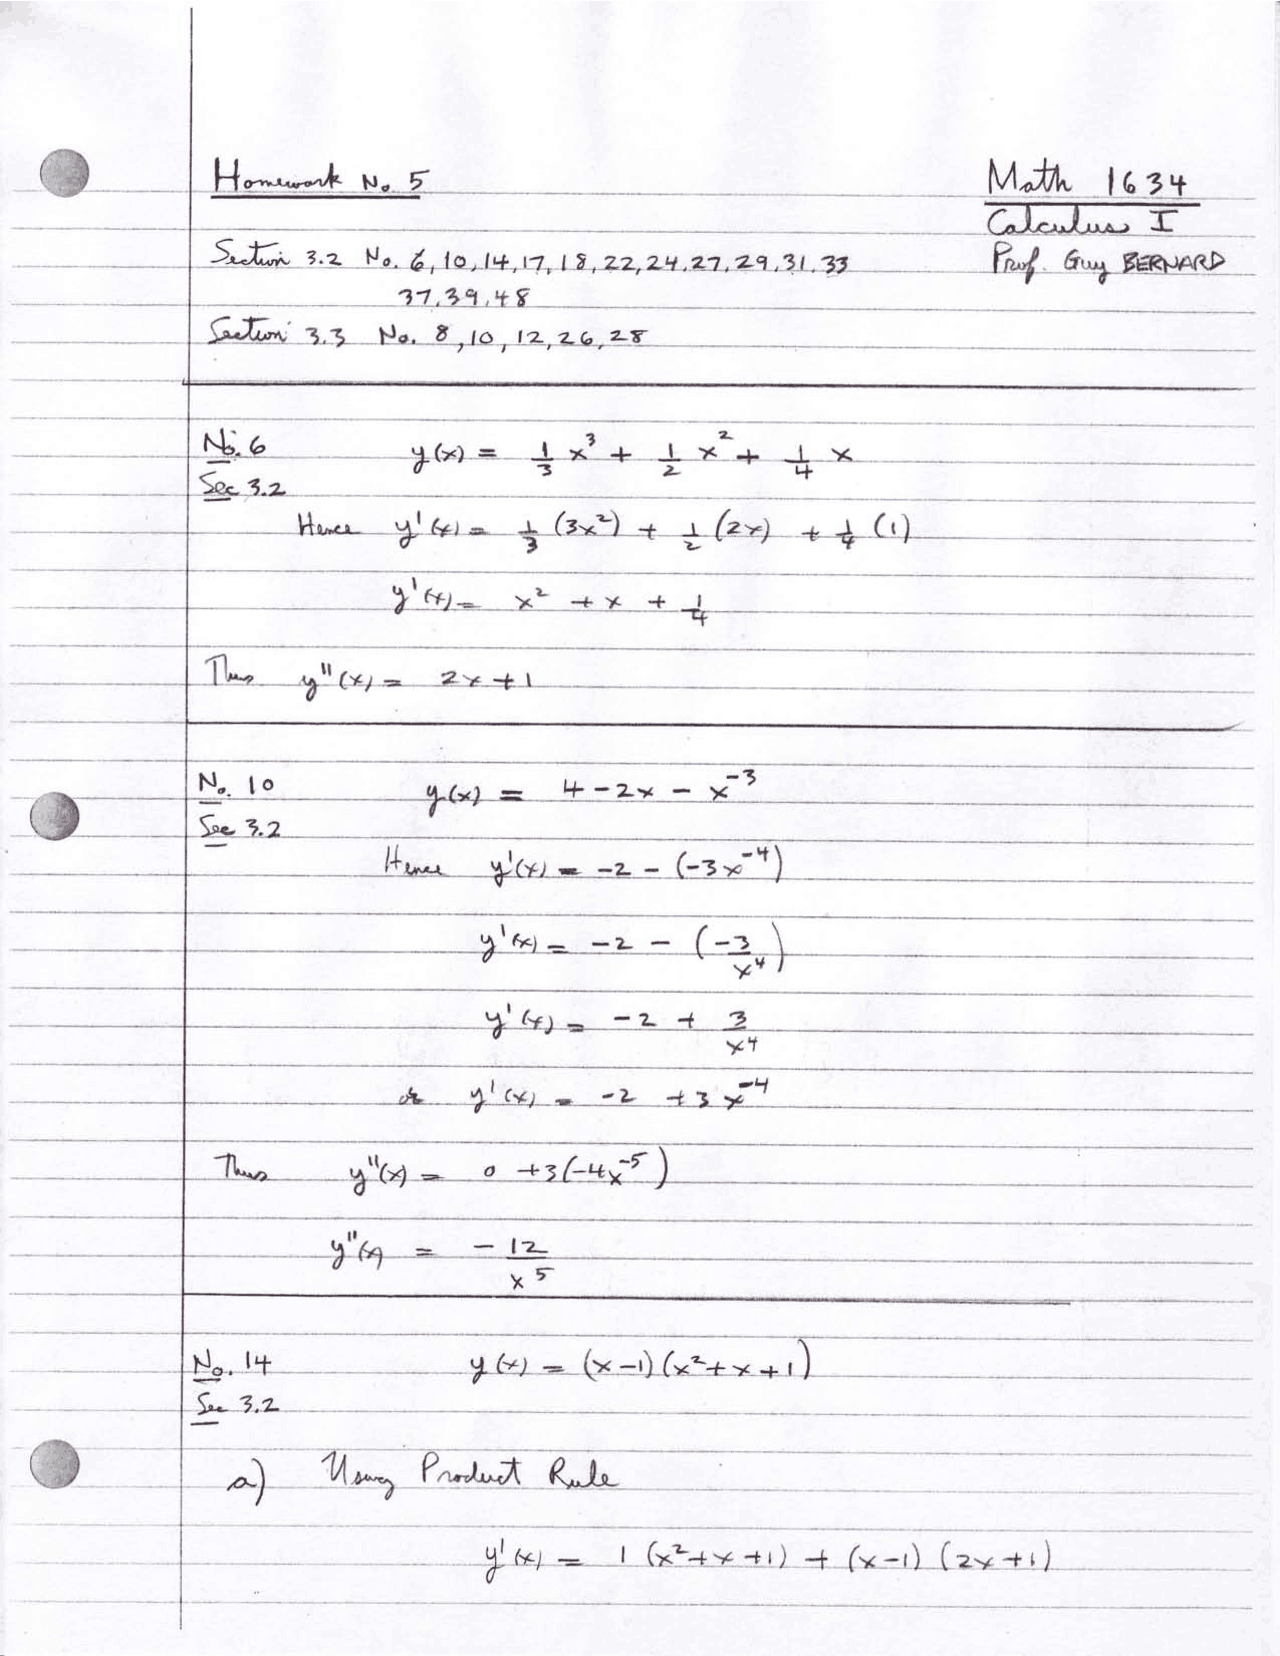 Homework No. 5
Math 1634
Calculus I
Prof. Guy BERNARD
Section 3.2 No. 6, 10, 14, 17, 18, 22, 24, 27, 29, 31, 33
37, 39, 48
Section 3.3 No. 8, 10, 12, 26, 28
No. 6 y(x) = 1/3 x³ + 1/2 x² + 1/4 x
Sec 3.2
Hence y'(x) = 1/3 (3x²) + 1/2 (2x) + 1/4 (1)
y'(x) = x² + x + 1/4
Thus y''(x) = 2x + 1
No. 10 y(x) = 4 - 2x - x⁻³
Sec 3.2
Hence y'(x) = -2 - (-3x⁻⁴)
y'(x) = -2 - (-3/x⁴)
y'(x) = -2 + 3/x⁴
or y'(x) = -2 + 3x⁻⁴
Thus y''(x) = 0 + 3(-4x⁻⁵)
y''(x) = -12/x⁵
No. 14 y(x) = (x-1)(x²+x+1)
Sec 3.2
a) Using Product Rule
y'(x) = 1 (x²+x+1) + (x-1) (2x+1)